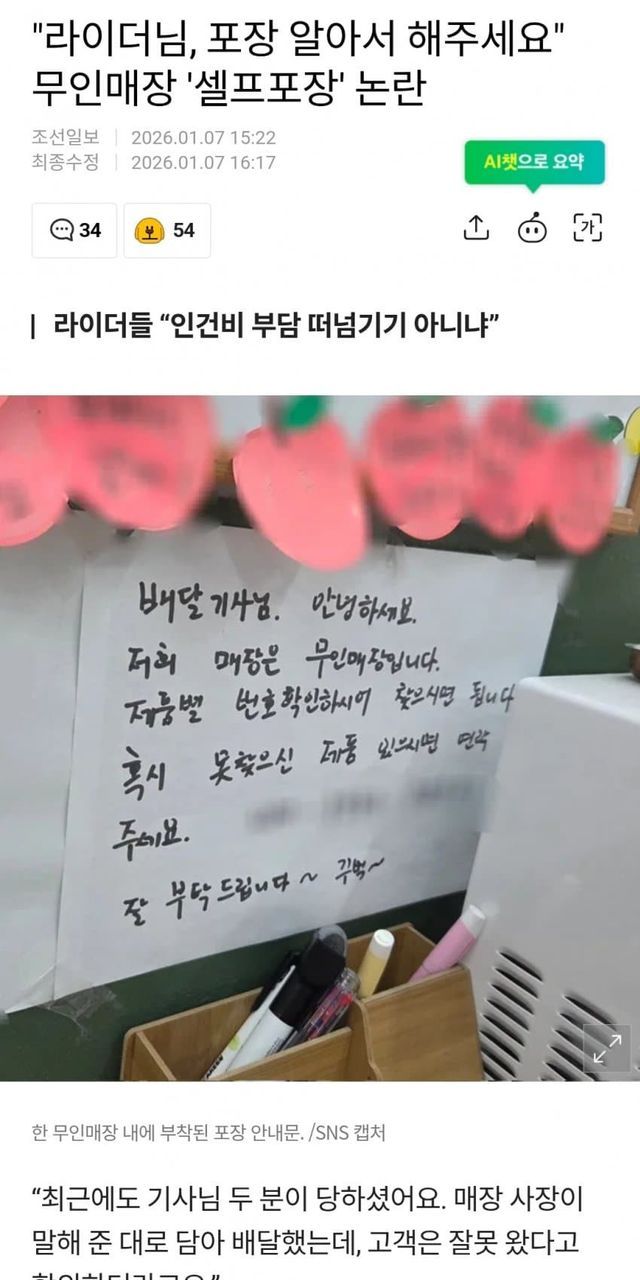 "라이더님, 포장 알아서 해주세요"
무인매장 '셀프포장' 논란
조선일보 | 2026.01.07 15:22
최종수정 | 2026.01.07 16:17
AI챗으로 요약
34
54
가
라이더들 “인건비 부담 떠넘기기 아니냐”
배달기사님. 안녕하세요.
저희 매장은 무인매장입니다.
제품별 번호확인하시어 찾으시면 됩니다
혹시 못찾으신 제품 있으시면 연락
주세요.
잘 부탁드립니다~ 꾸벅~
한 무인매장 내에 부착된 포장 안내문. /SNS 캡처
“최근에도 기사님 두 분이 당하셨어요. 매장 사장이
말해 준 대로 담아 배달했는데, 고객은 잘못 왔다고